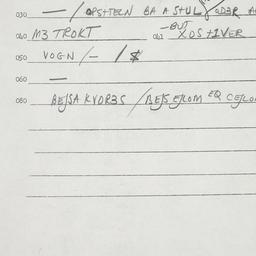 030 — / OPS+TELN BA A S+UL / OD3R
-BUT
040 M3 TROKT 041 XOS +1VER
050 VOGN / — / $
060 —
080 BEJSA KVDR3S / BEJS EJLOM EQ CEJLO